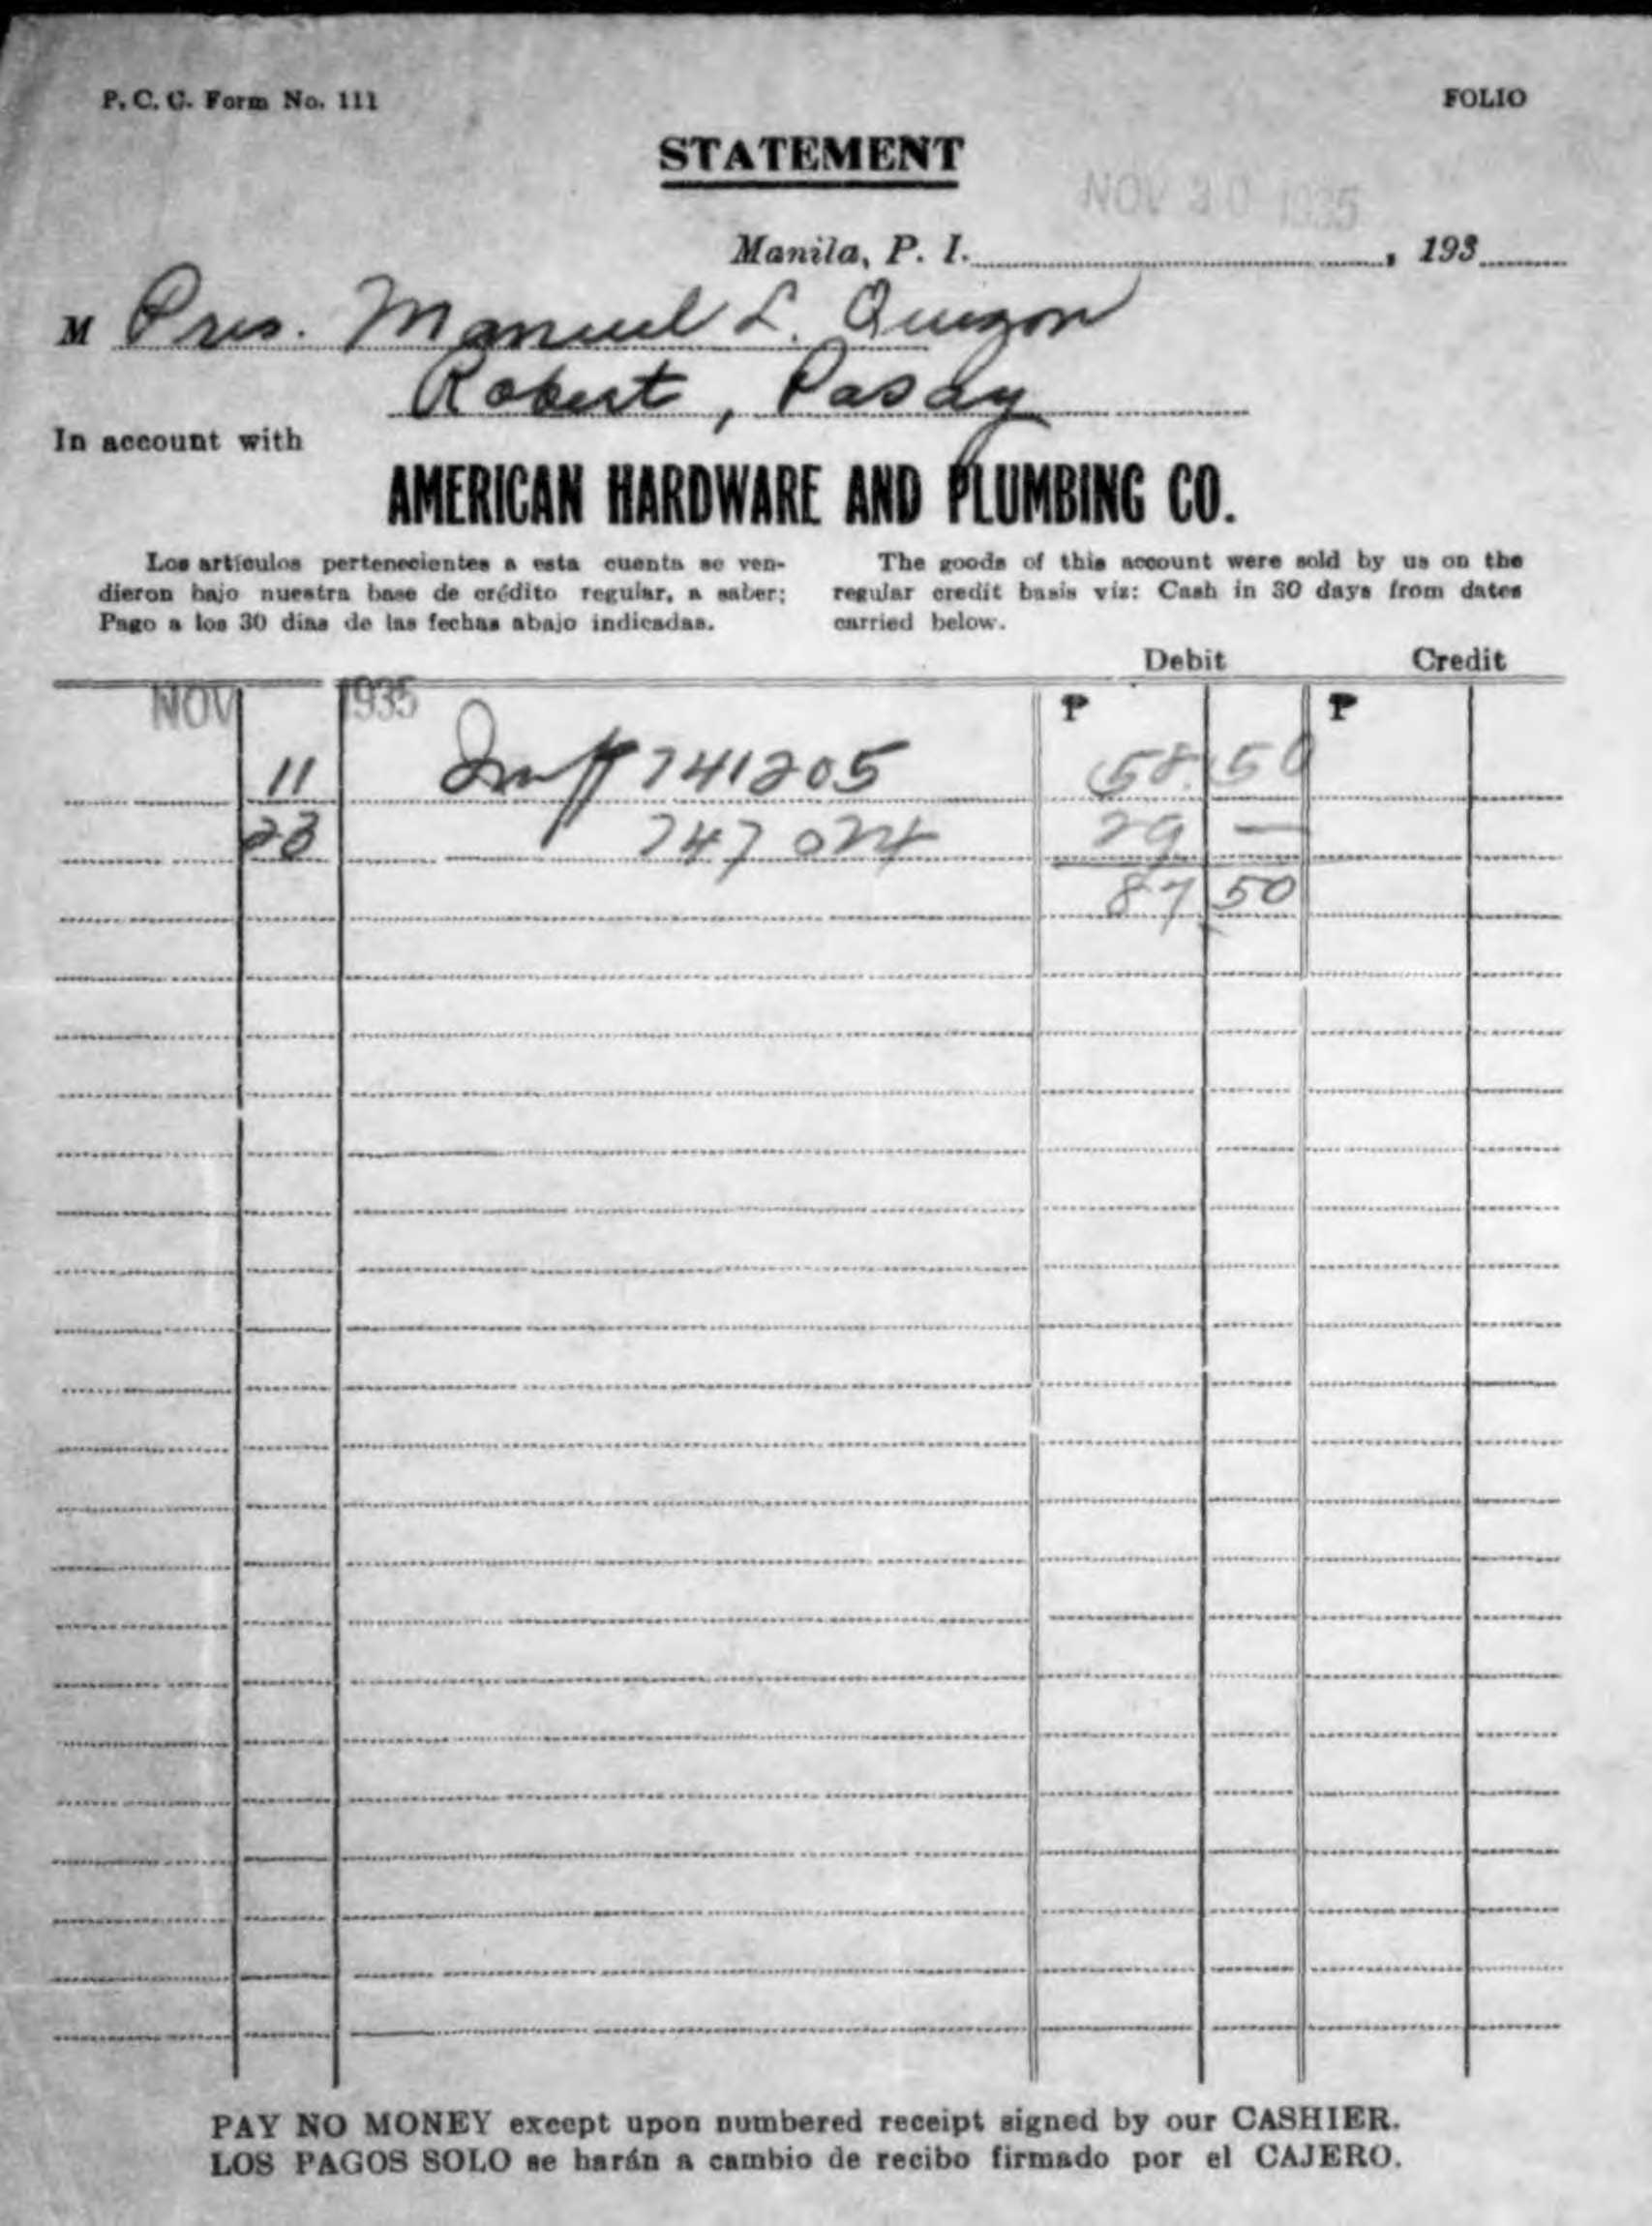 P. C. C. Form No. 111
FOLIO
STATEMENT
NOV 30 1935
Manila, P. I. , 193
M Pres. Manuel L. Quezon
Robert, Pasay
In account with
AMERICAN HARDWARE AND PLUMBING CO.
Los artículos pertenecientes a esta cuenta se ven-
dieron bajo nuestra base de crédito regular, a saber;
Pago a los 30 dias de las fechas abajo indicadas.
The goods of this account were sold by us on the
regular credit basis viz: Cash in 30 days from dates
carried below.
Debit Credit
NOV 1935 ₱ ₱
11 Inv # 741205 58.50
23 747024 29 —
87 50
PAY NO MONEY except upon numbered receipt signed by our CASHIER.
LOS PAGOS SOLO se harán a cambio de recibo firmado por el CAJERO.